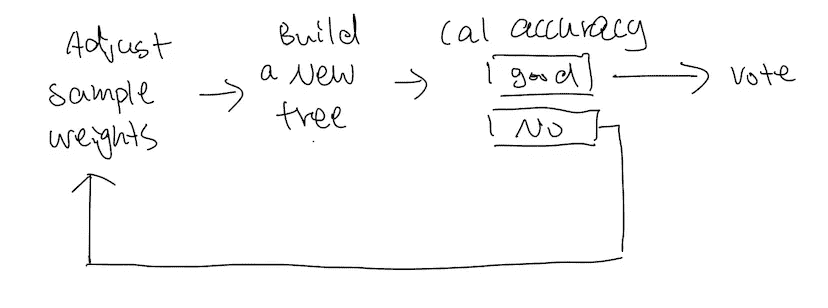 Adjust
sample
weights
Build
a New
tree
Cal accuracy
good
No
vote